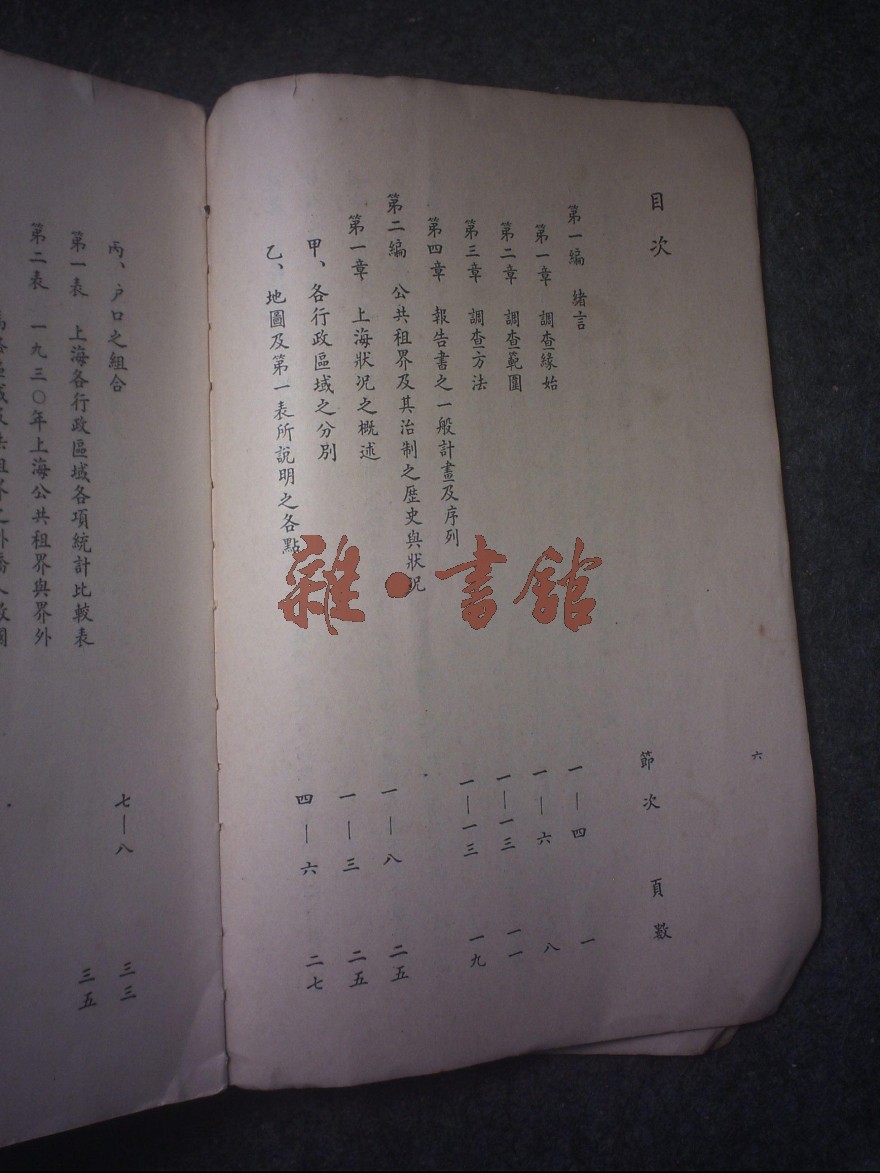 六
目次 節次 頁數
第一編 緒言
第一章 調查緣始 一—四 一
第二章 調查範圍 一—六 八
第三章 調查方法 一—一三 一一
第四章 報告書之一般計畫及序列 一—一三 一九
第二編 公共租界及其治制之歷史與狀況
第一章 上海狀况之概述 一—八 二五
甲、各行政區域之分別 一—三 二五
乙、地圖及第一表所說明之各點 四—六 二七
丙、戶口之組合 七—八 三三
第一表 上海各行政區域各項統計比較表 三五
第二表 一九三〇年上海公共租界與界外
雜·書館